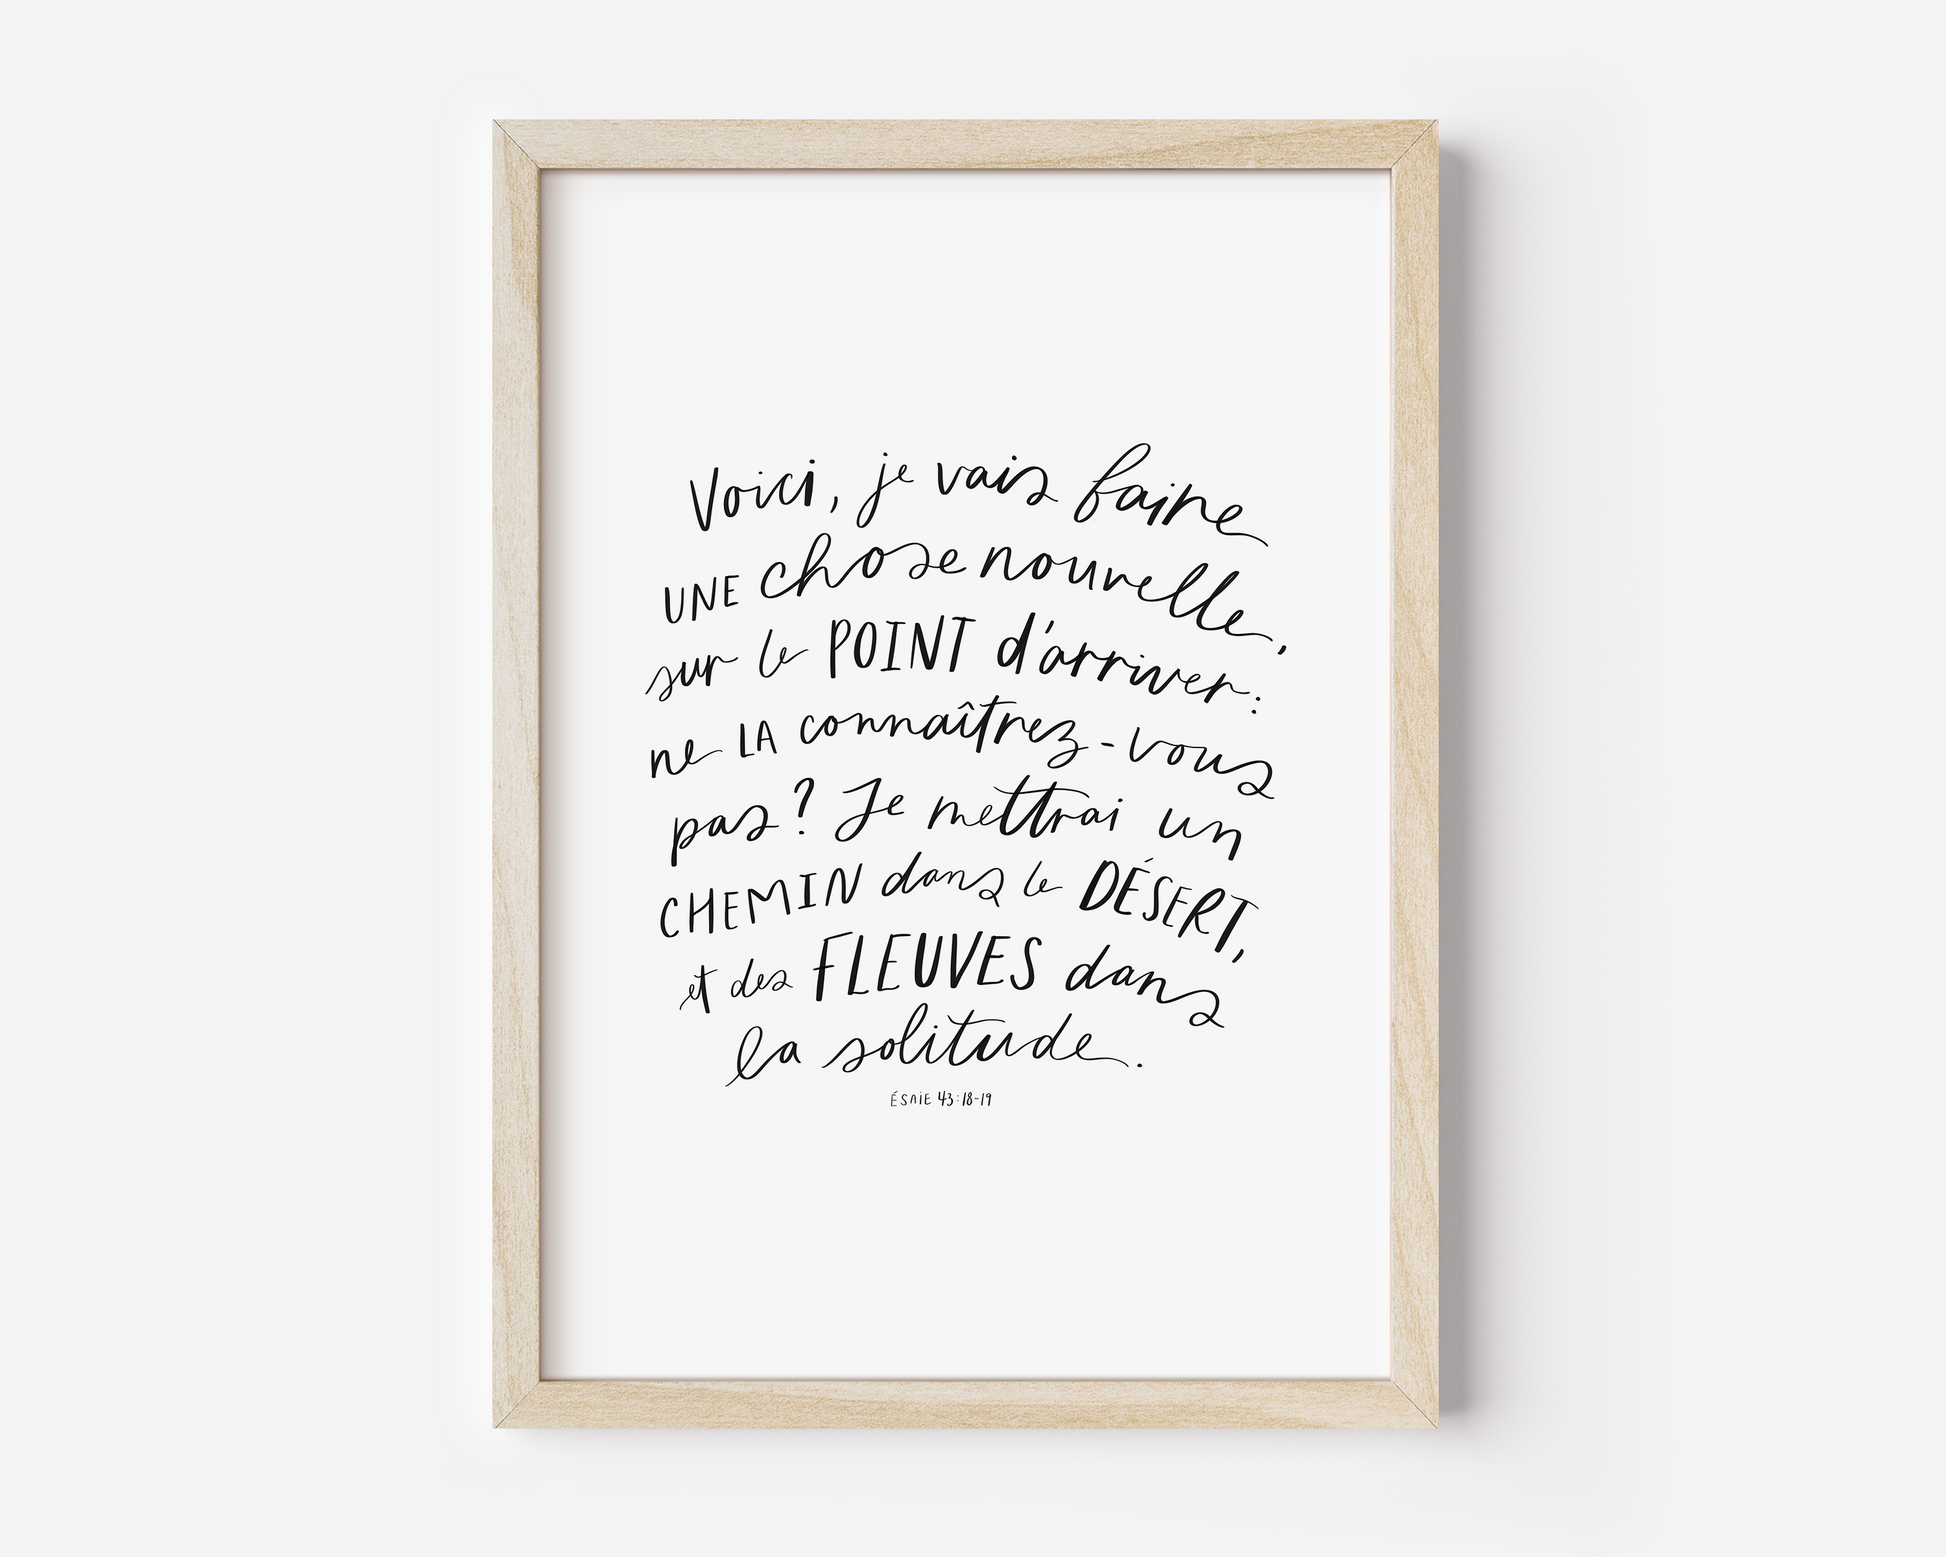 Voici, je vais faire
UNE chose nouvelle,
sur le POINT d'arriver:
ne LA connaîtrez-vous
pas? Je mettrai un
CHEMIN dans le DÉSERT,
et des FLEUVES dans
la solitude.
ÉSAIE 43:18-19